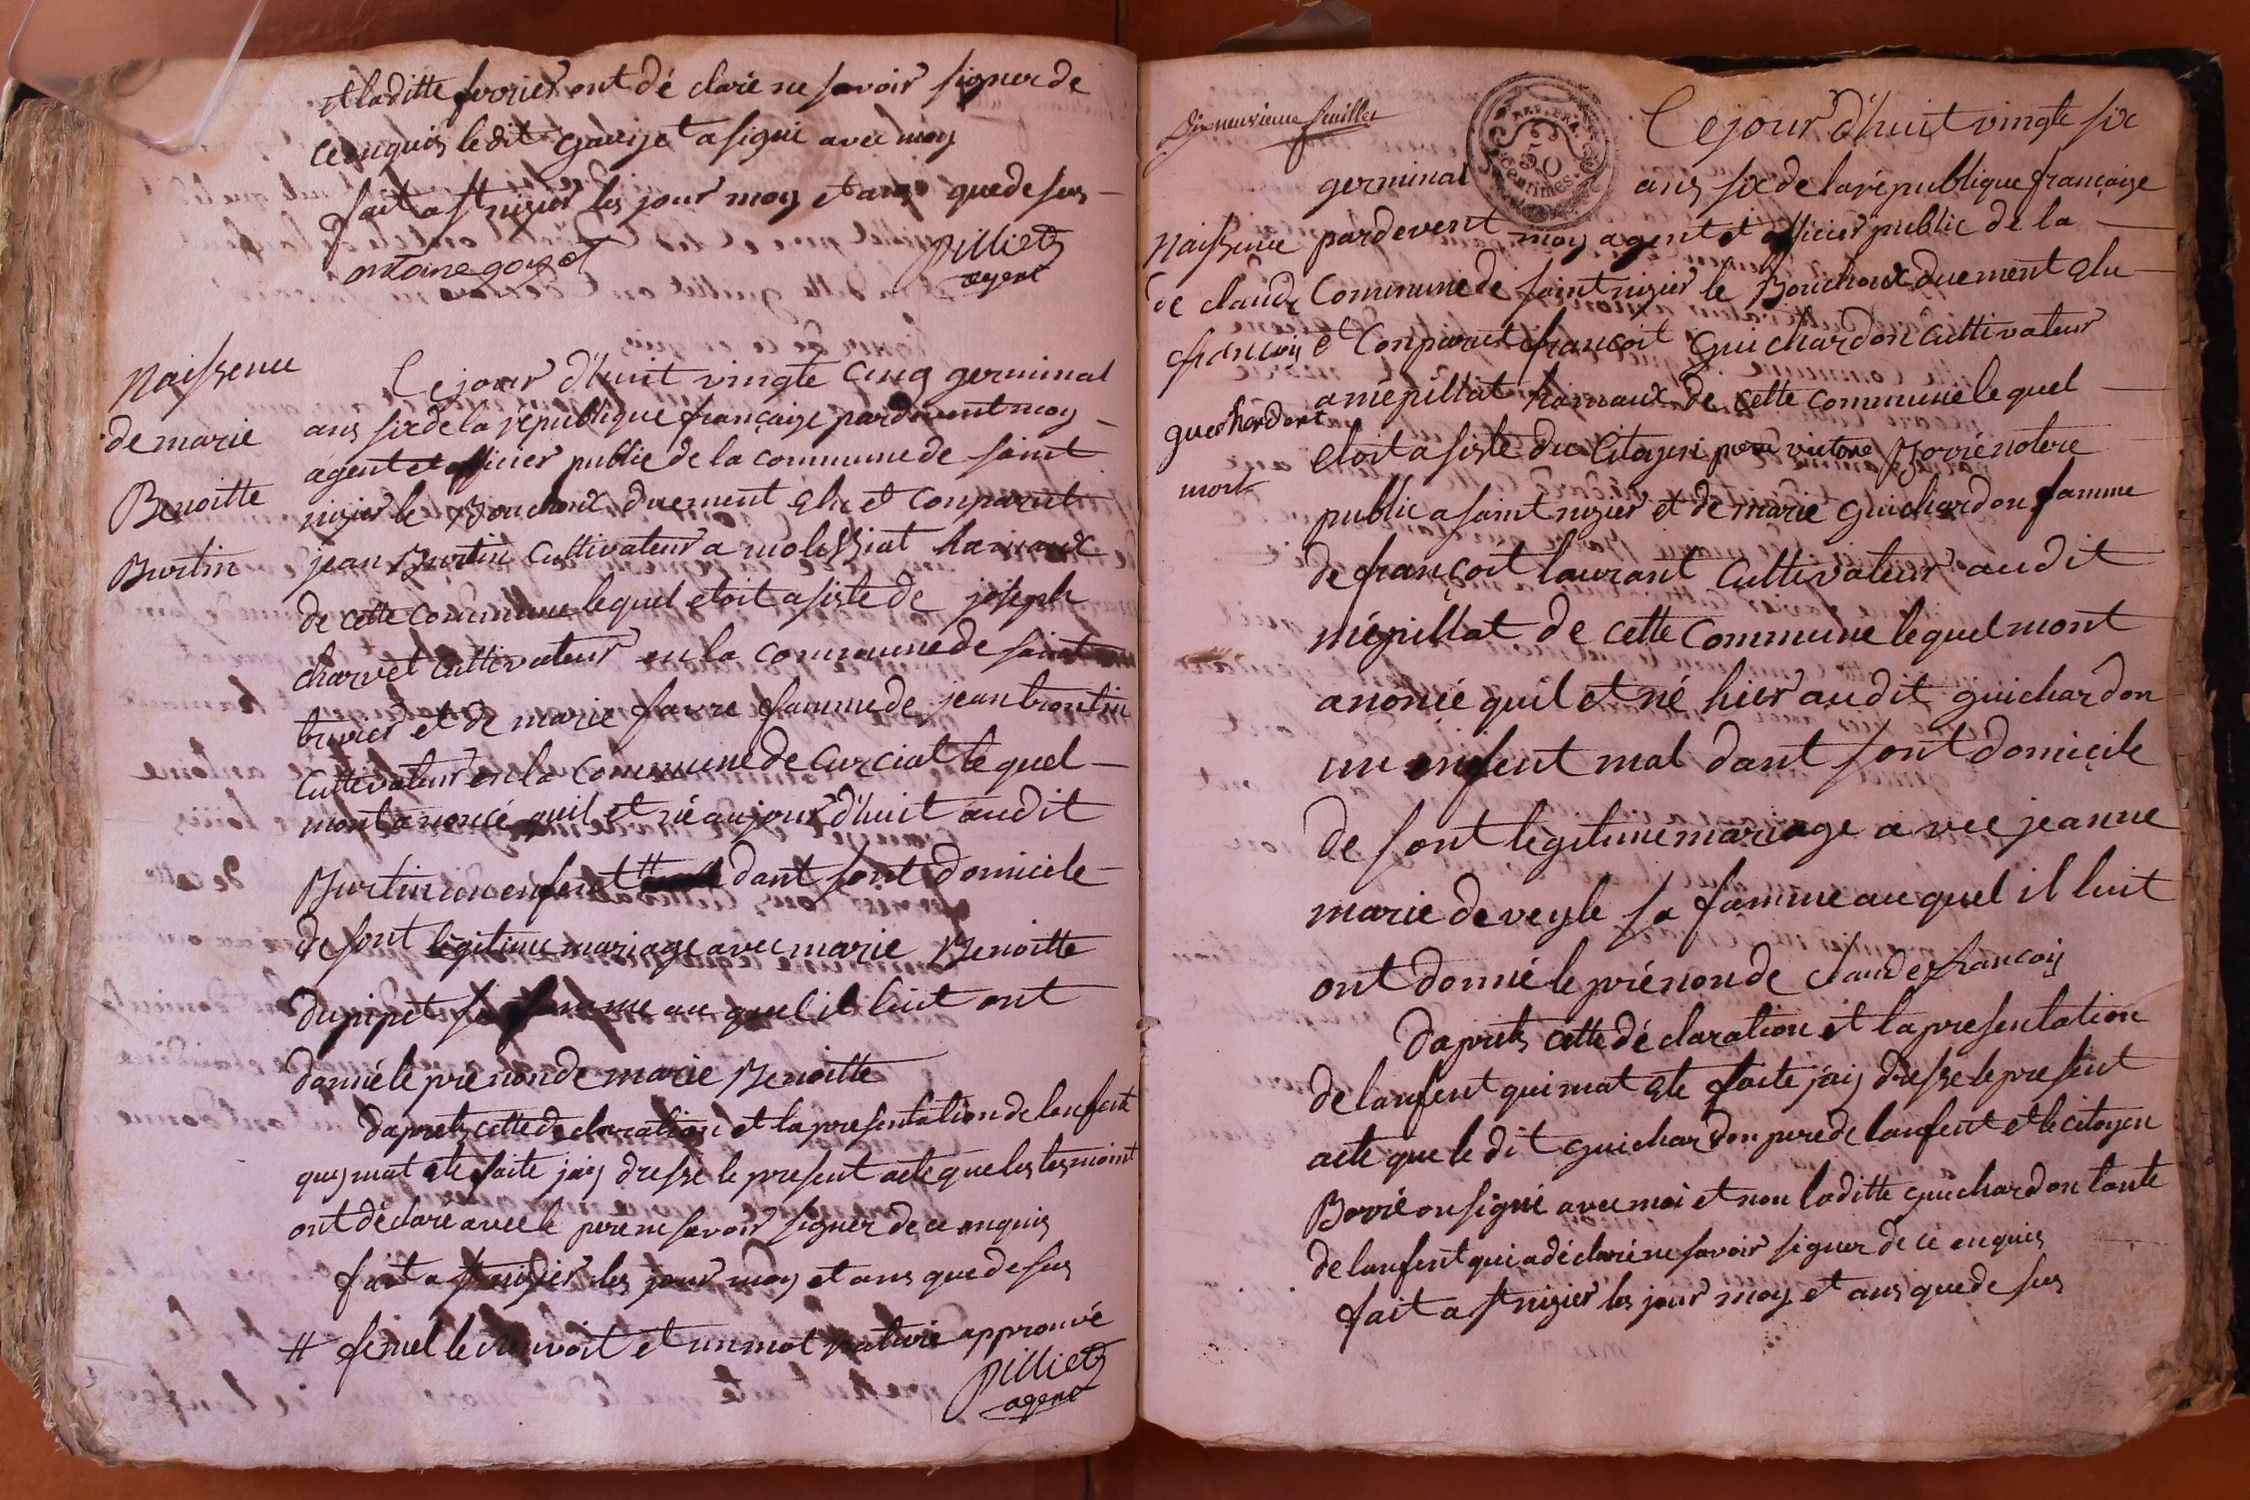 et laditte fevrier ont dé claré ne savoir signer de
ce enquis le dit gavijet a signé avec moy
fait a st nizier les jour moy et ans que de sus
antoine
pilliet
agent
Naissence
de marie
Benoitte
Burtin
Ce jour d'huit vingte cinq germinal
ans six de la republique françaize pardevent moy
agent et officier public de la commune de saint
nizier le Bouchoux duement elu et conparut
jean Burtin cultivateur a molissiat hamaux
de cette commune lequel etoit asisté de joseph
charvet cultivateur en la commune de saint
trivier et de marie favre famme de jean
cultivateur en la commune de curciat le quel
mont anoncé quil et né aujour d'huit audit
Burtin un enfent # dant sont domicile
de sont legitime mariage avec marie Benoitte
dupipet sa famme au quel il luit ont
donné le prenon de marie Benoitte
daprets cette declaration et la presentation de lenfent
quy mat eté faite jaiy dressé le present acte que les tesmoint
ont declaré avec le pere ne savoir signer de ce enquis
fait a st nizier les jour moy et ans que de sus
# femel le renvoit et un mot raturé approuvé
pilliet
agent
Dixneuvieme feuillet
REP. FRA.
50
centimes
Ce jour d'huit vingte six
germinal ans six de la république françaize
Naissence
de claude
francois
guicherdont
mort
pardevent moy agent et officier public de la
Commune de saint nizier le Bouchoux duement elu
et Conparut françoit Guichardon cultivateur
a mépillat hamaux de cette commune le quel
etoit asisté du Citoyen victore Borrié notere
public a saint nizier et de marie Guichardon famme
de françoit laurant cultivateur audit
mépillat de cette commune le quel mont
anoncé quil et né hier audit guichardon
un enfent mal dant sont domicile
de sont legitime mariage avec jeanne
marie deveyle sa famme au quel il luit
ont donné le prénon de claude francois
daprets cette dé claration et la presentation
de lanfent qui mat eté faite j'aiy dressé le present
acte que le dit guichardon pere de lanfent et le citoyen
Borrié on signé avec moi et non laditte guichardon tante
de lanfent qui a déclaré ne savoir signer de ce enquis
fait a st nizier les jour moy et ans que de sus